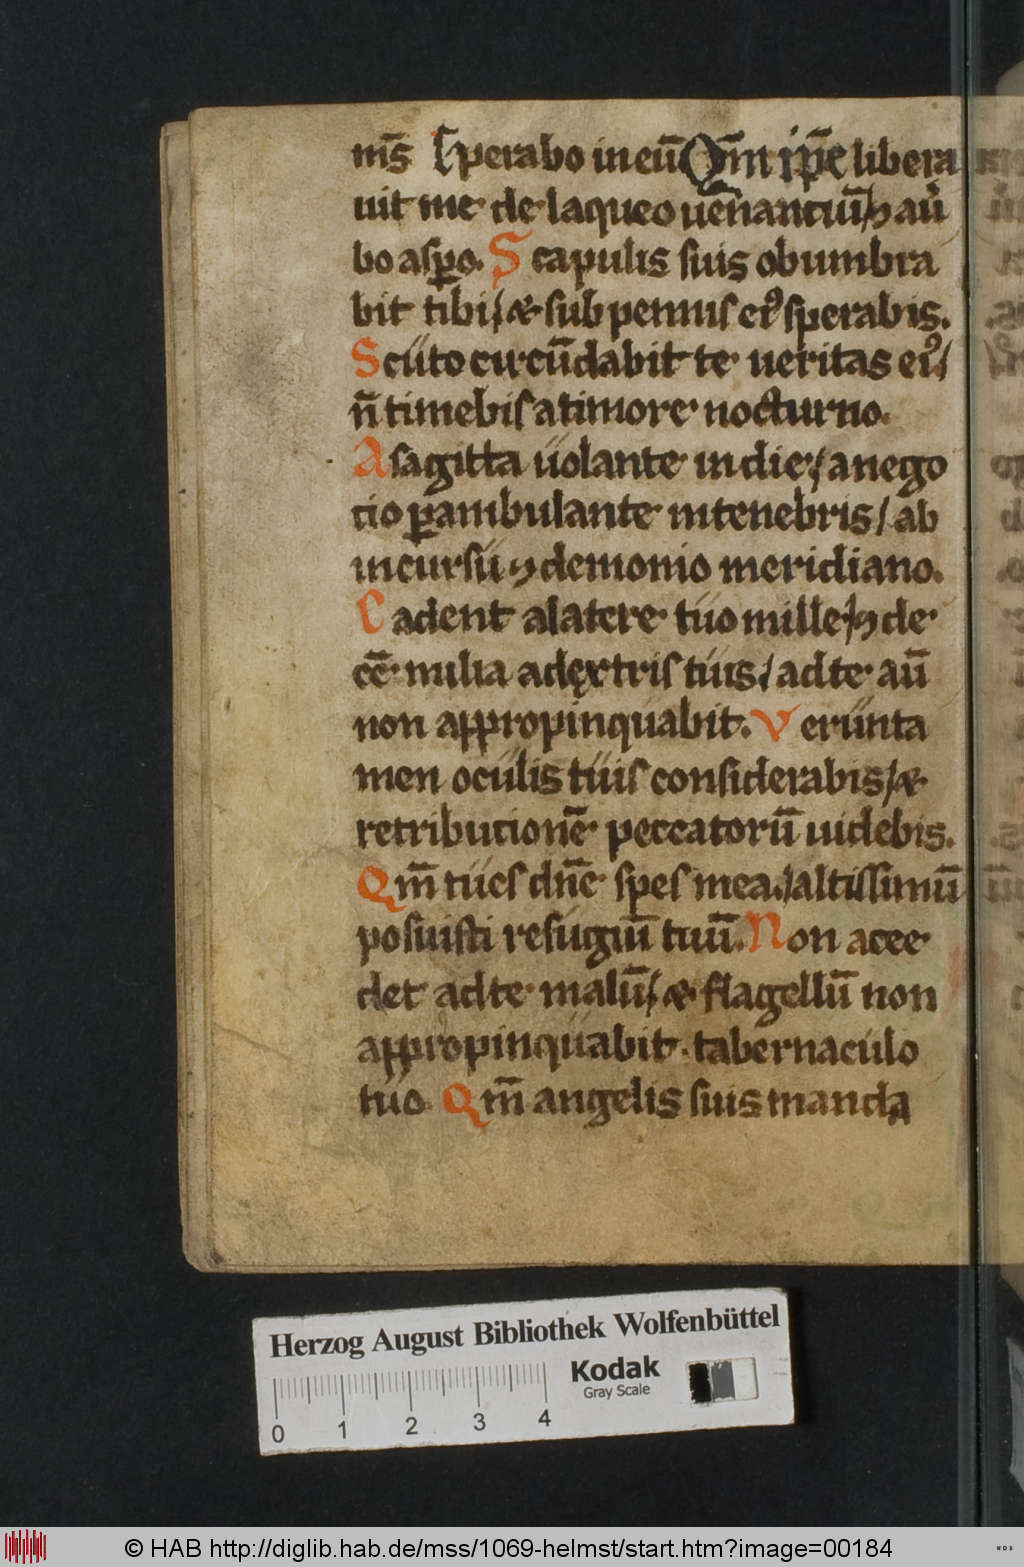 ms̄ Sperabo in eū Qm̄ ip̄e libera
uit me de laqueo uenantiū / ⁊ a ů
bo asꝑo. Scapulis suis obumbra
bit tibi / & sub pennis eiꝰ sperabis.
Scuto circūdabit te ueritas eiꝰ /
n̄ timebis a timore nocturno.
A sagitta uolante in die / a nego
cio ꝑambulante in tenebris / ab
incursu ⁊ demonio meridiano.
Cadent a latere tuo mille / ⁊ de
cē milia a dextris tuis / ad te aū
non appropinquabit. Uerunta
men oculis tuis considerabis / &
retributionē peccatorū uidebis.
Qm̄ tu es dn̄e spes mea / altissimū
posuisti refugiū tuū. Non acce
det ad te malū / & flagellū non
appropinquabit tabernaculo
tuo Qm̄ angelis suis manda
Herzog August Bibliothek Wolfenbüttel
Kodak
Gray Scale
0 1 2 3 4
© HAB http://diglib.hab.de/mss/1069-helmst/start.htm?image=00184